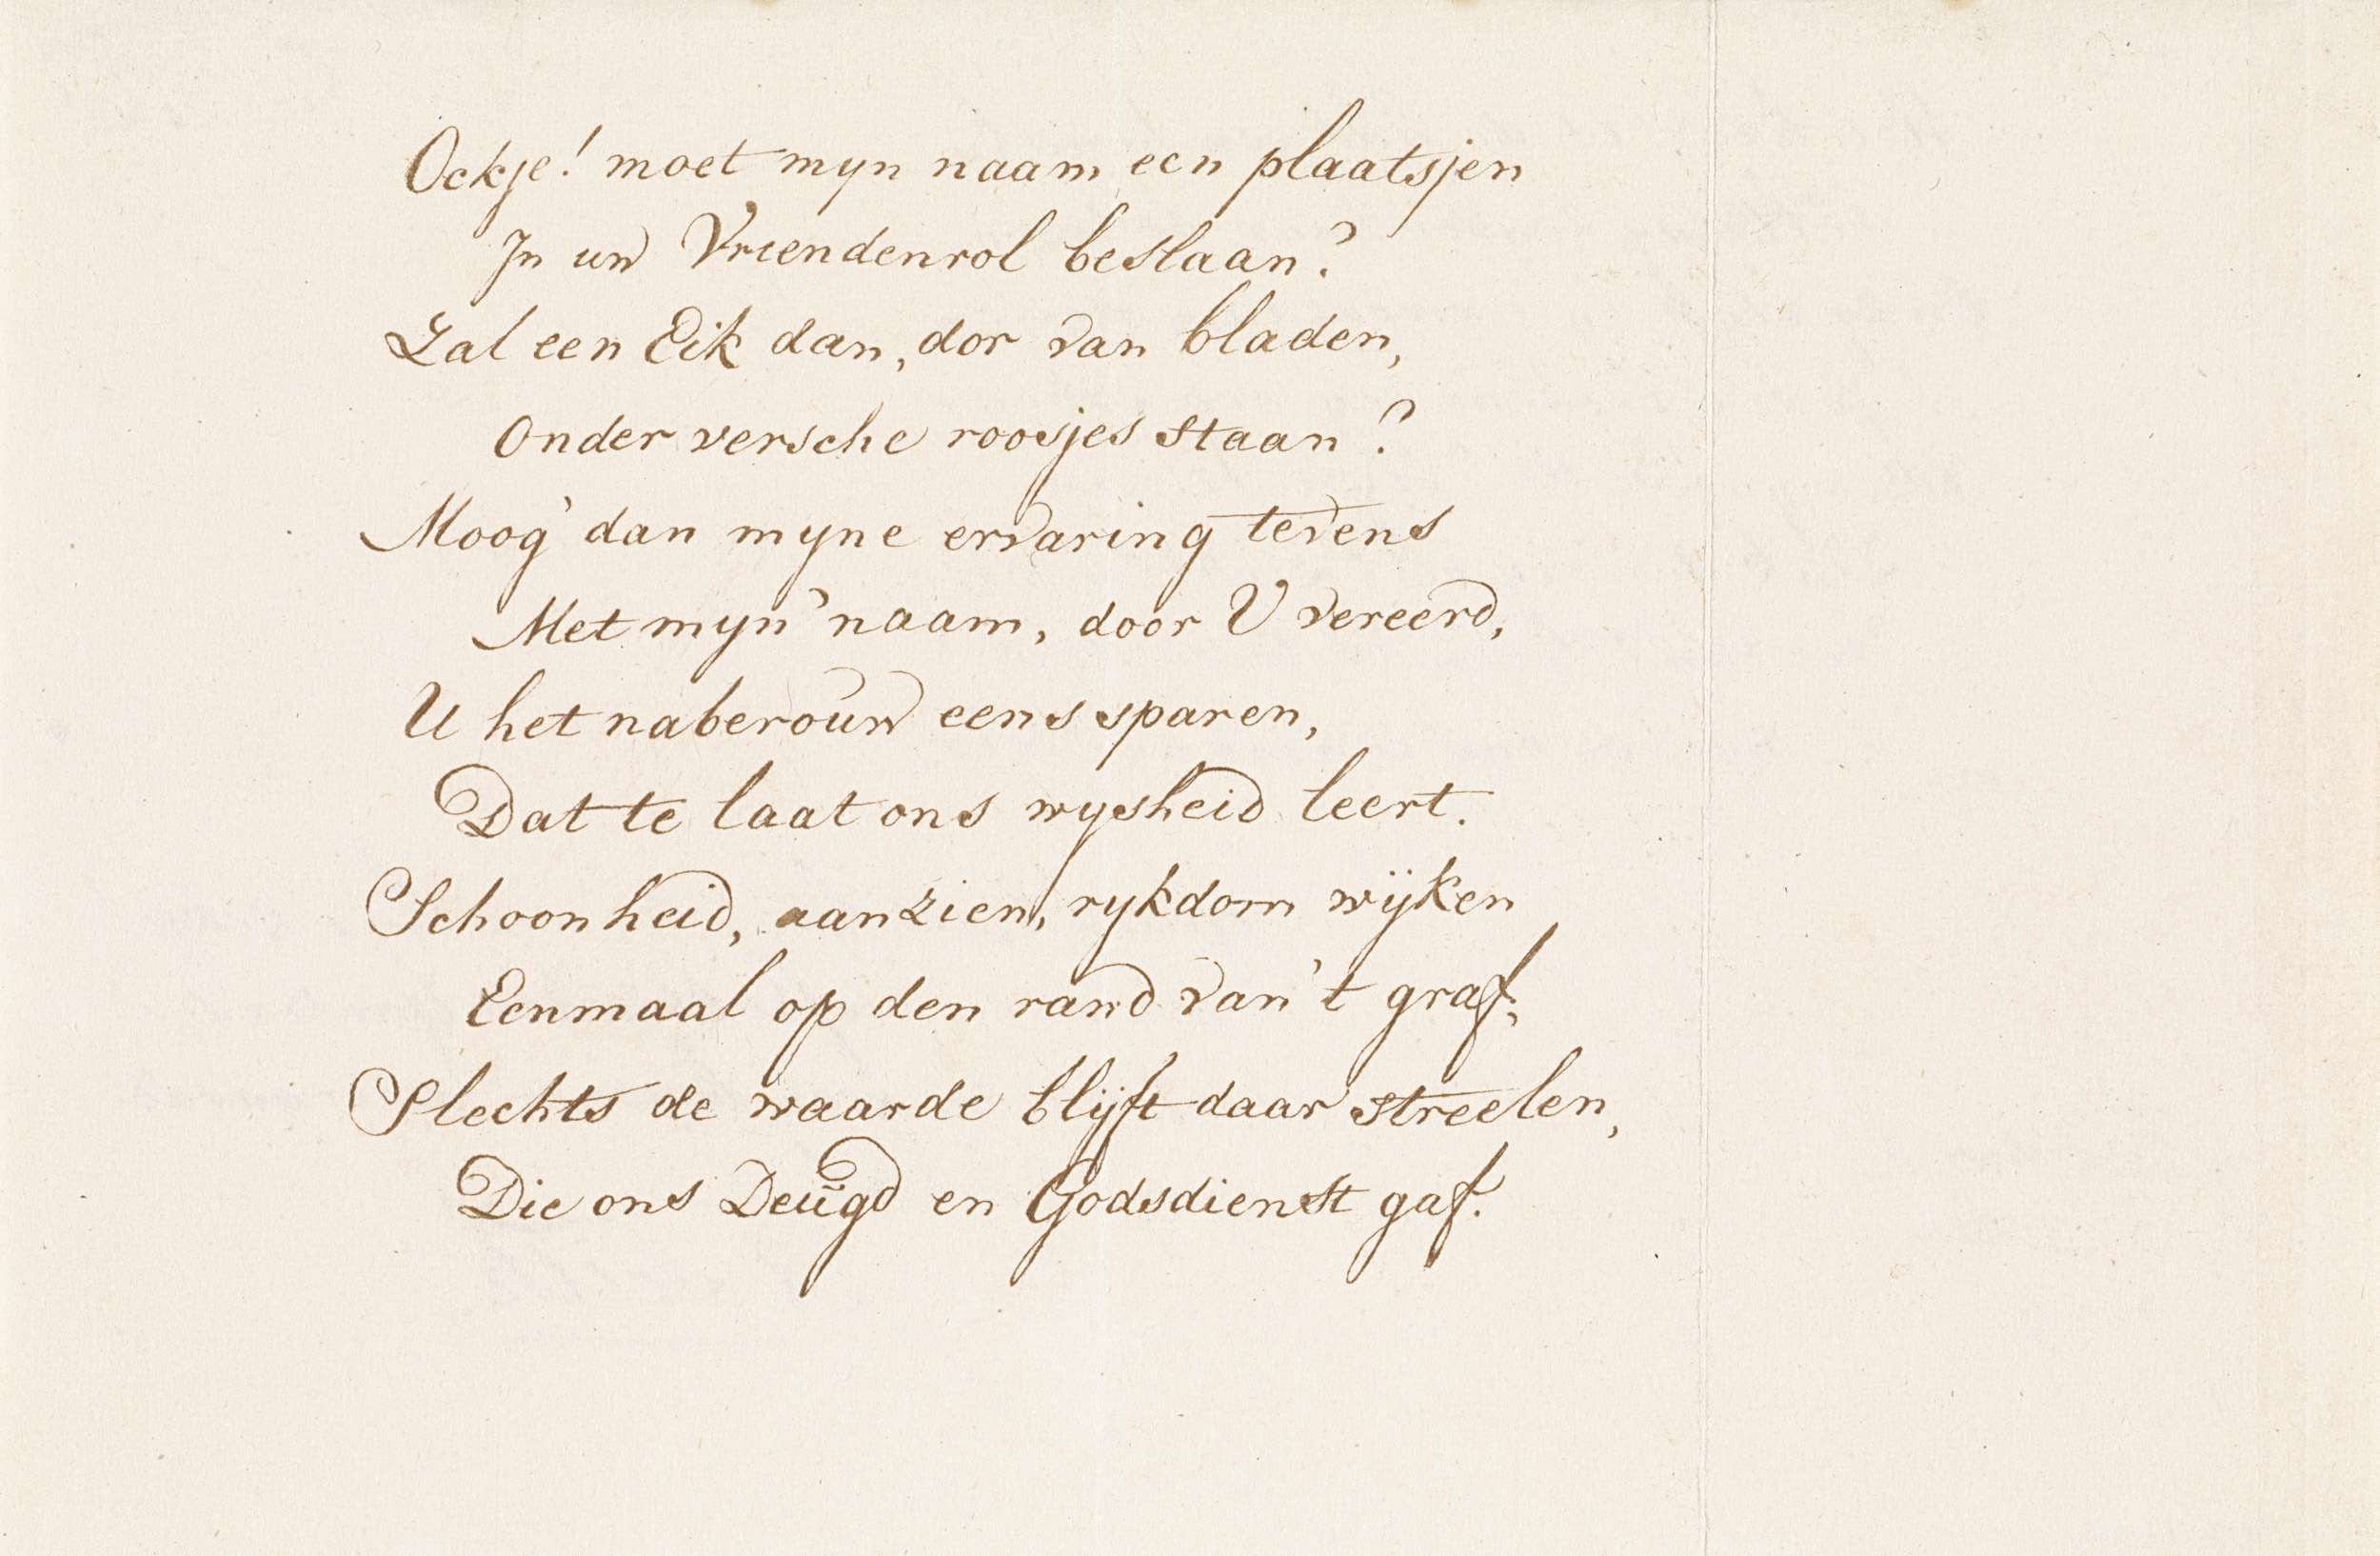 Ockje! moet myn naam een plaatsjen
In uw Vriendenrol beslaan?
Zal een Eik dan, dor van bladen,
Onder versche roosjes staan?
Moog' dan myne ervaring tevens
Met myn' naam, door U vereerd,
U het naberouw eens sparen,
Dat te laat ons wysheid leert.
Schoonheid, aanzien, rykdom wijken
Eenmaal op den rand van 't graf;
Slechts de waarde blijft daar streelen,
Die ons Deugd en Godsdienst gaf.